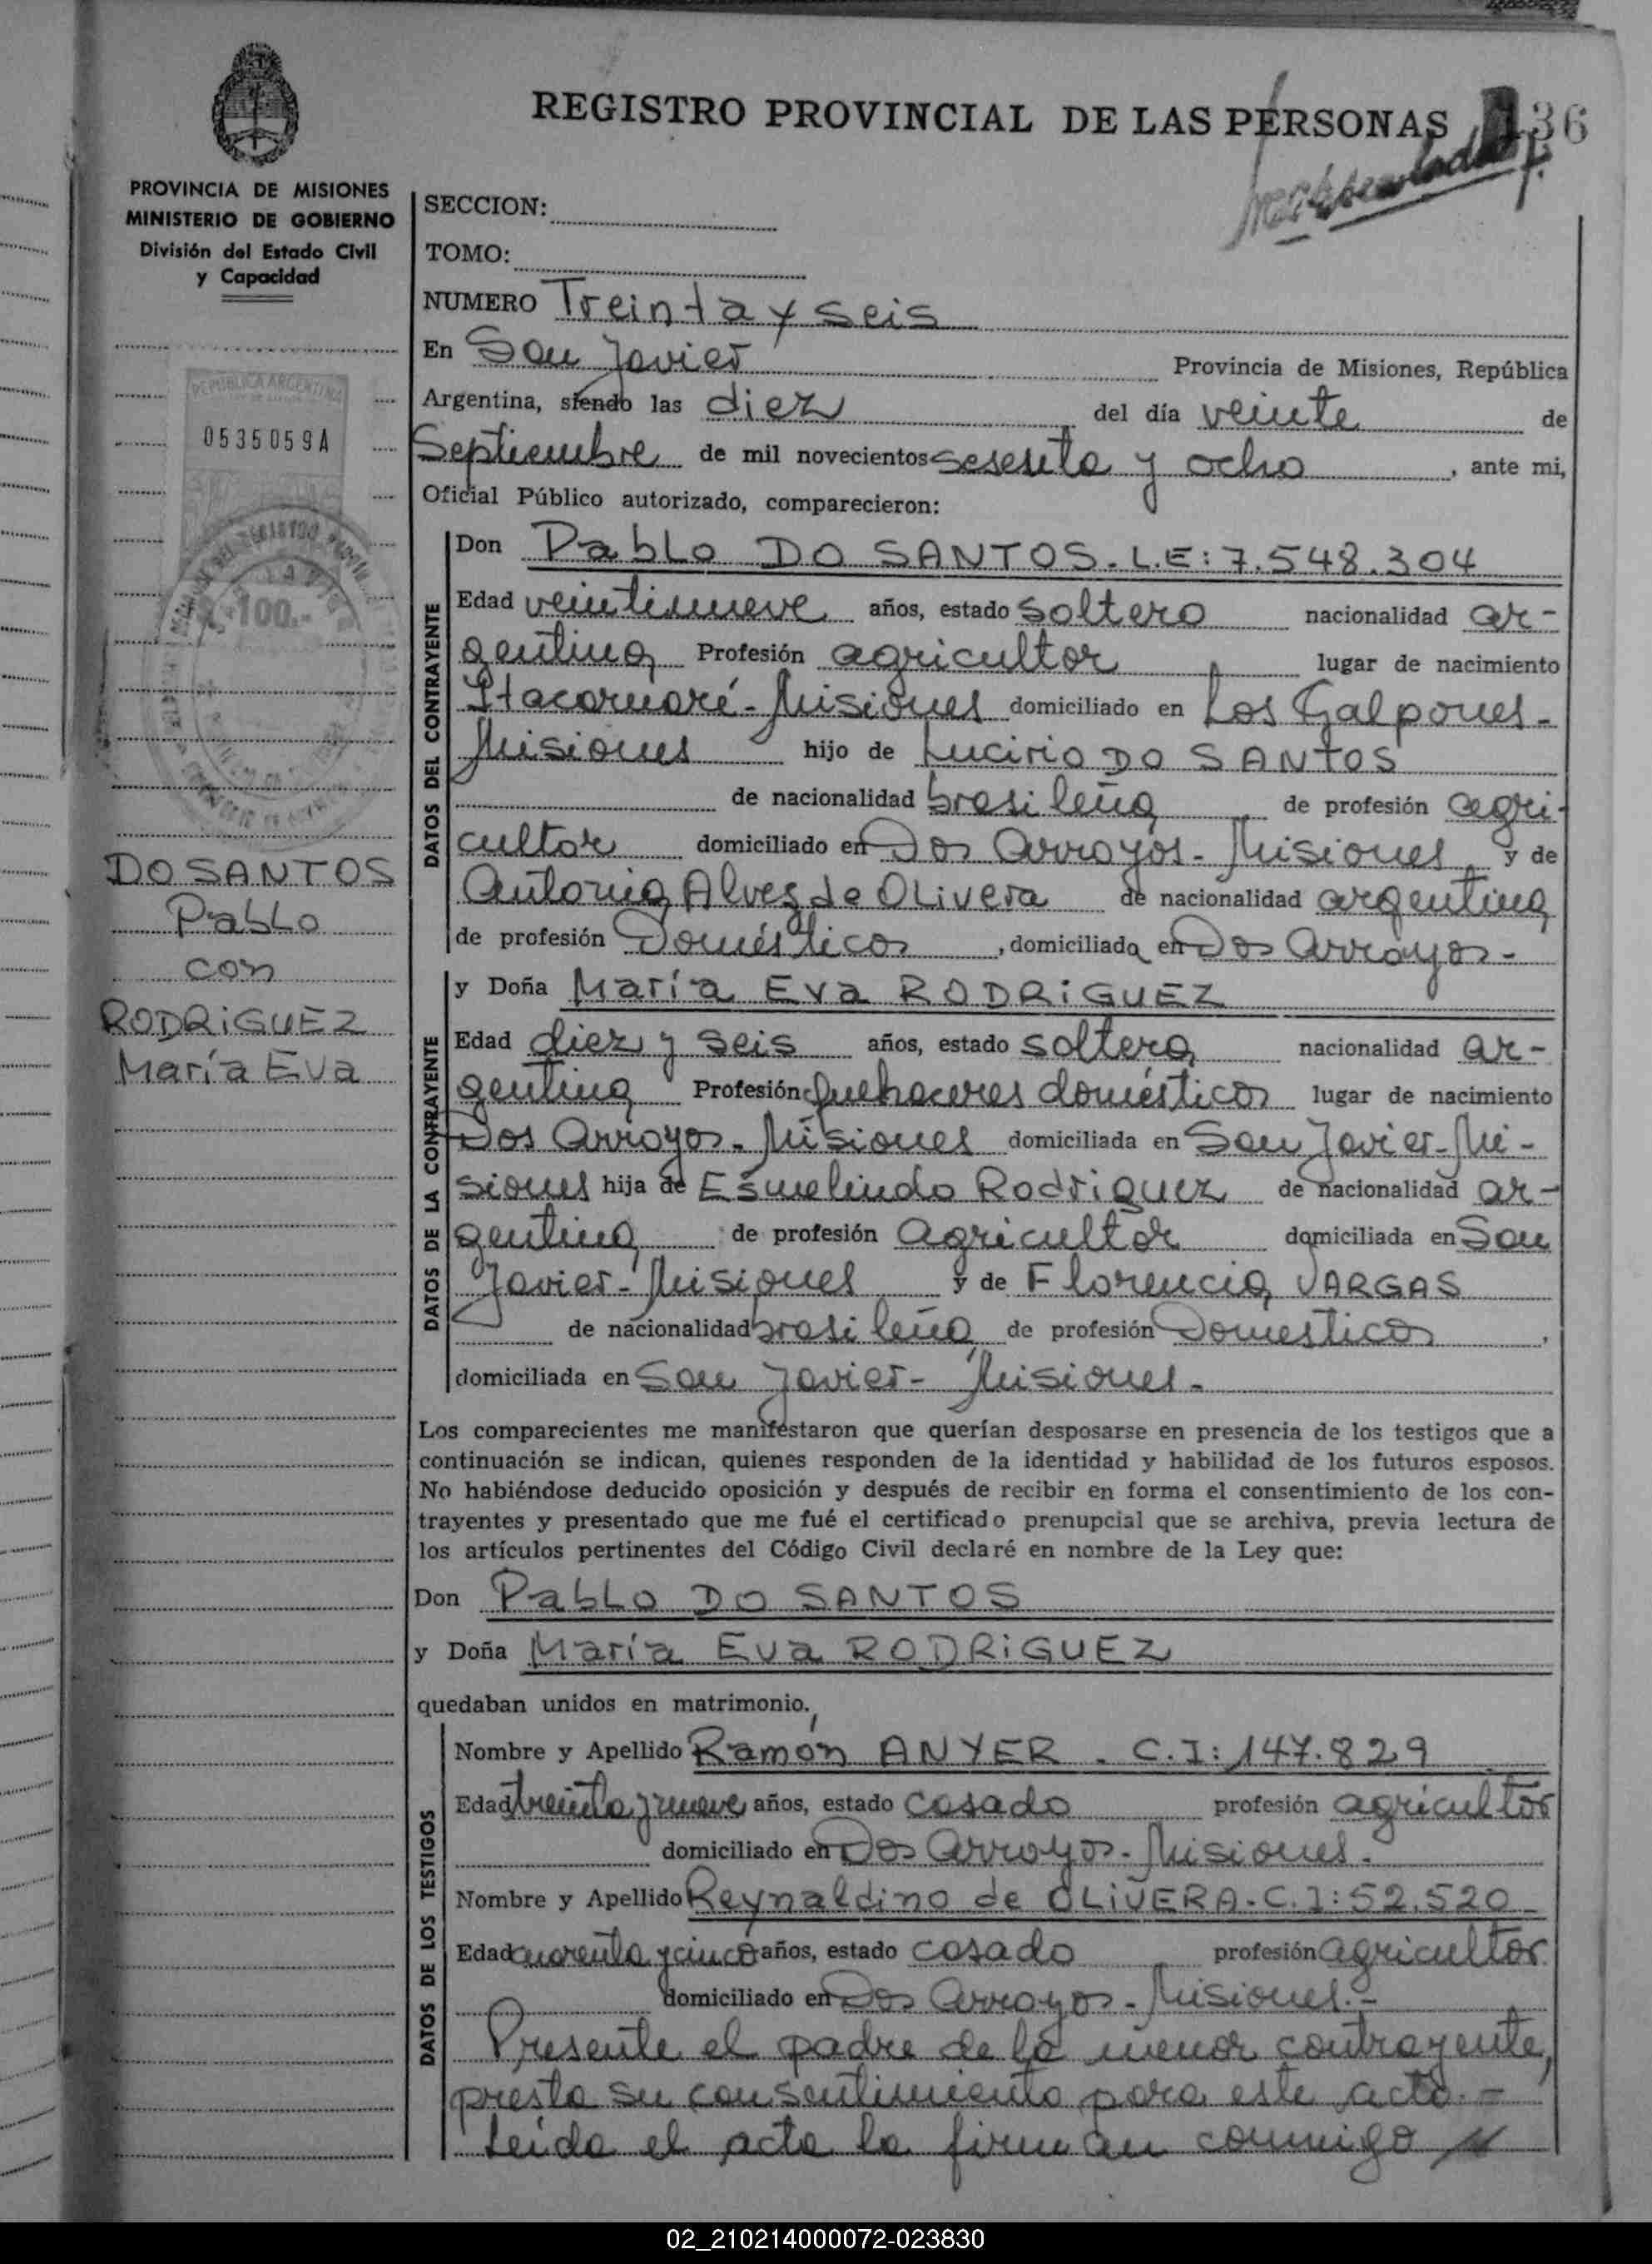 REGISTRO PROVINCIAL DE LAS PERSONAS 36
PROVINCIA DE MISIONES
MINISTERIO DE GOBIERNO
División del Estado Civil
y Capacidad
REPUBLICA ARGENTINA
0535059A
100.-
DO SANTOS
Pablo
con
RODRIGUEZ
María Eva
SECCION:
TOMO:
NUMERO Treinta y seis
En San Javier Provincia de Misiones, República
Argentina, siendo las diez del día veinte de
Septiembre de mil novecientos sesenta y ocho, ante mi,
Oficial Público autorizado, comparecieron:
DATOS DEL CONTRAYENTE
Don Pablo DO SANTOS. L.E: 7.548.304
Edad veintinueve años, estado soltero nacionalidad ar-
gentina Profesión agricultor lugar de nacimiento
Itacaruaré - Misiones domiciliado en Los Galpones -
Misiones hijo de Lucirio DO SANTOS
de nacionalidad brasileña de profesión agri-
cultor domiciliado en Dos Arroyos - Misiones y de
Antonia Alvez de Olivera de nacionalidad argentina
de profesión Domésticos, domiciliada en Dos Arroyos -
DATOS DE LA CONTRAYENTE
y Doña María Eva RODRIGUEZ
Edad diez y seis años, estado soltera nacionalidad ar-
gentina Profesión Quehaceres domésticos lugar de nacimiento
Dos Arroyos - Misiones domiciliada en San Javier - Mi-
siones hija de Esmelindo Rodriguez de nacionalidad ar-
gentina de profesión Agricultor domiciliada en San
Javier - Misiones y de Florencia VARGAS
de nacionalidad brasileña de profesión Domesticos,
domiciliada en San Javier - Misiones -
Los comparecientes me manifestaron que querían desposarse en presencia de los testigos que a
continuación se indican, quienes responden de la identidad y habilidad de los futuros esposos.
No habiéndose deducido oposición y después de recibir en forma el consentimiento de los con-
trayentes y presentado que me fué el certificado prenupcial que se archiva, previa lectura de
los artículos pertinentes del Código Civil declaré en nombre de la Ley que:
Don Pablo DO SANTOS
y Doña María Eva RODRIGUEZ
quedaban unidos en matrimonio.
DATOS DE LOS TESTIGOS
Nombre y Apellido Ramón ANYER. C.I: 147.829
Edad treinta y nueve años, estado casado profesión agricultor
domiciliado en Dos Arroyos - Misiones.
Nombre y Apellido Reynaldino de OLIVERA. C.I: 52.520
Edad cuarenta y cinco años, estado casado profesión agricultor
domiciliado en Dos Arroyos - Misiones.-
Presente el padre de la menor contrayente,
presta su consentimiento para este acto.-
Leída el acta la firman conmigo
02_210214000072-023830